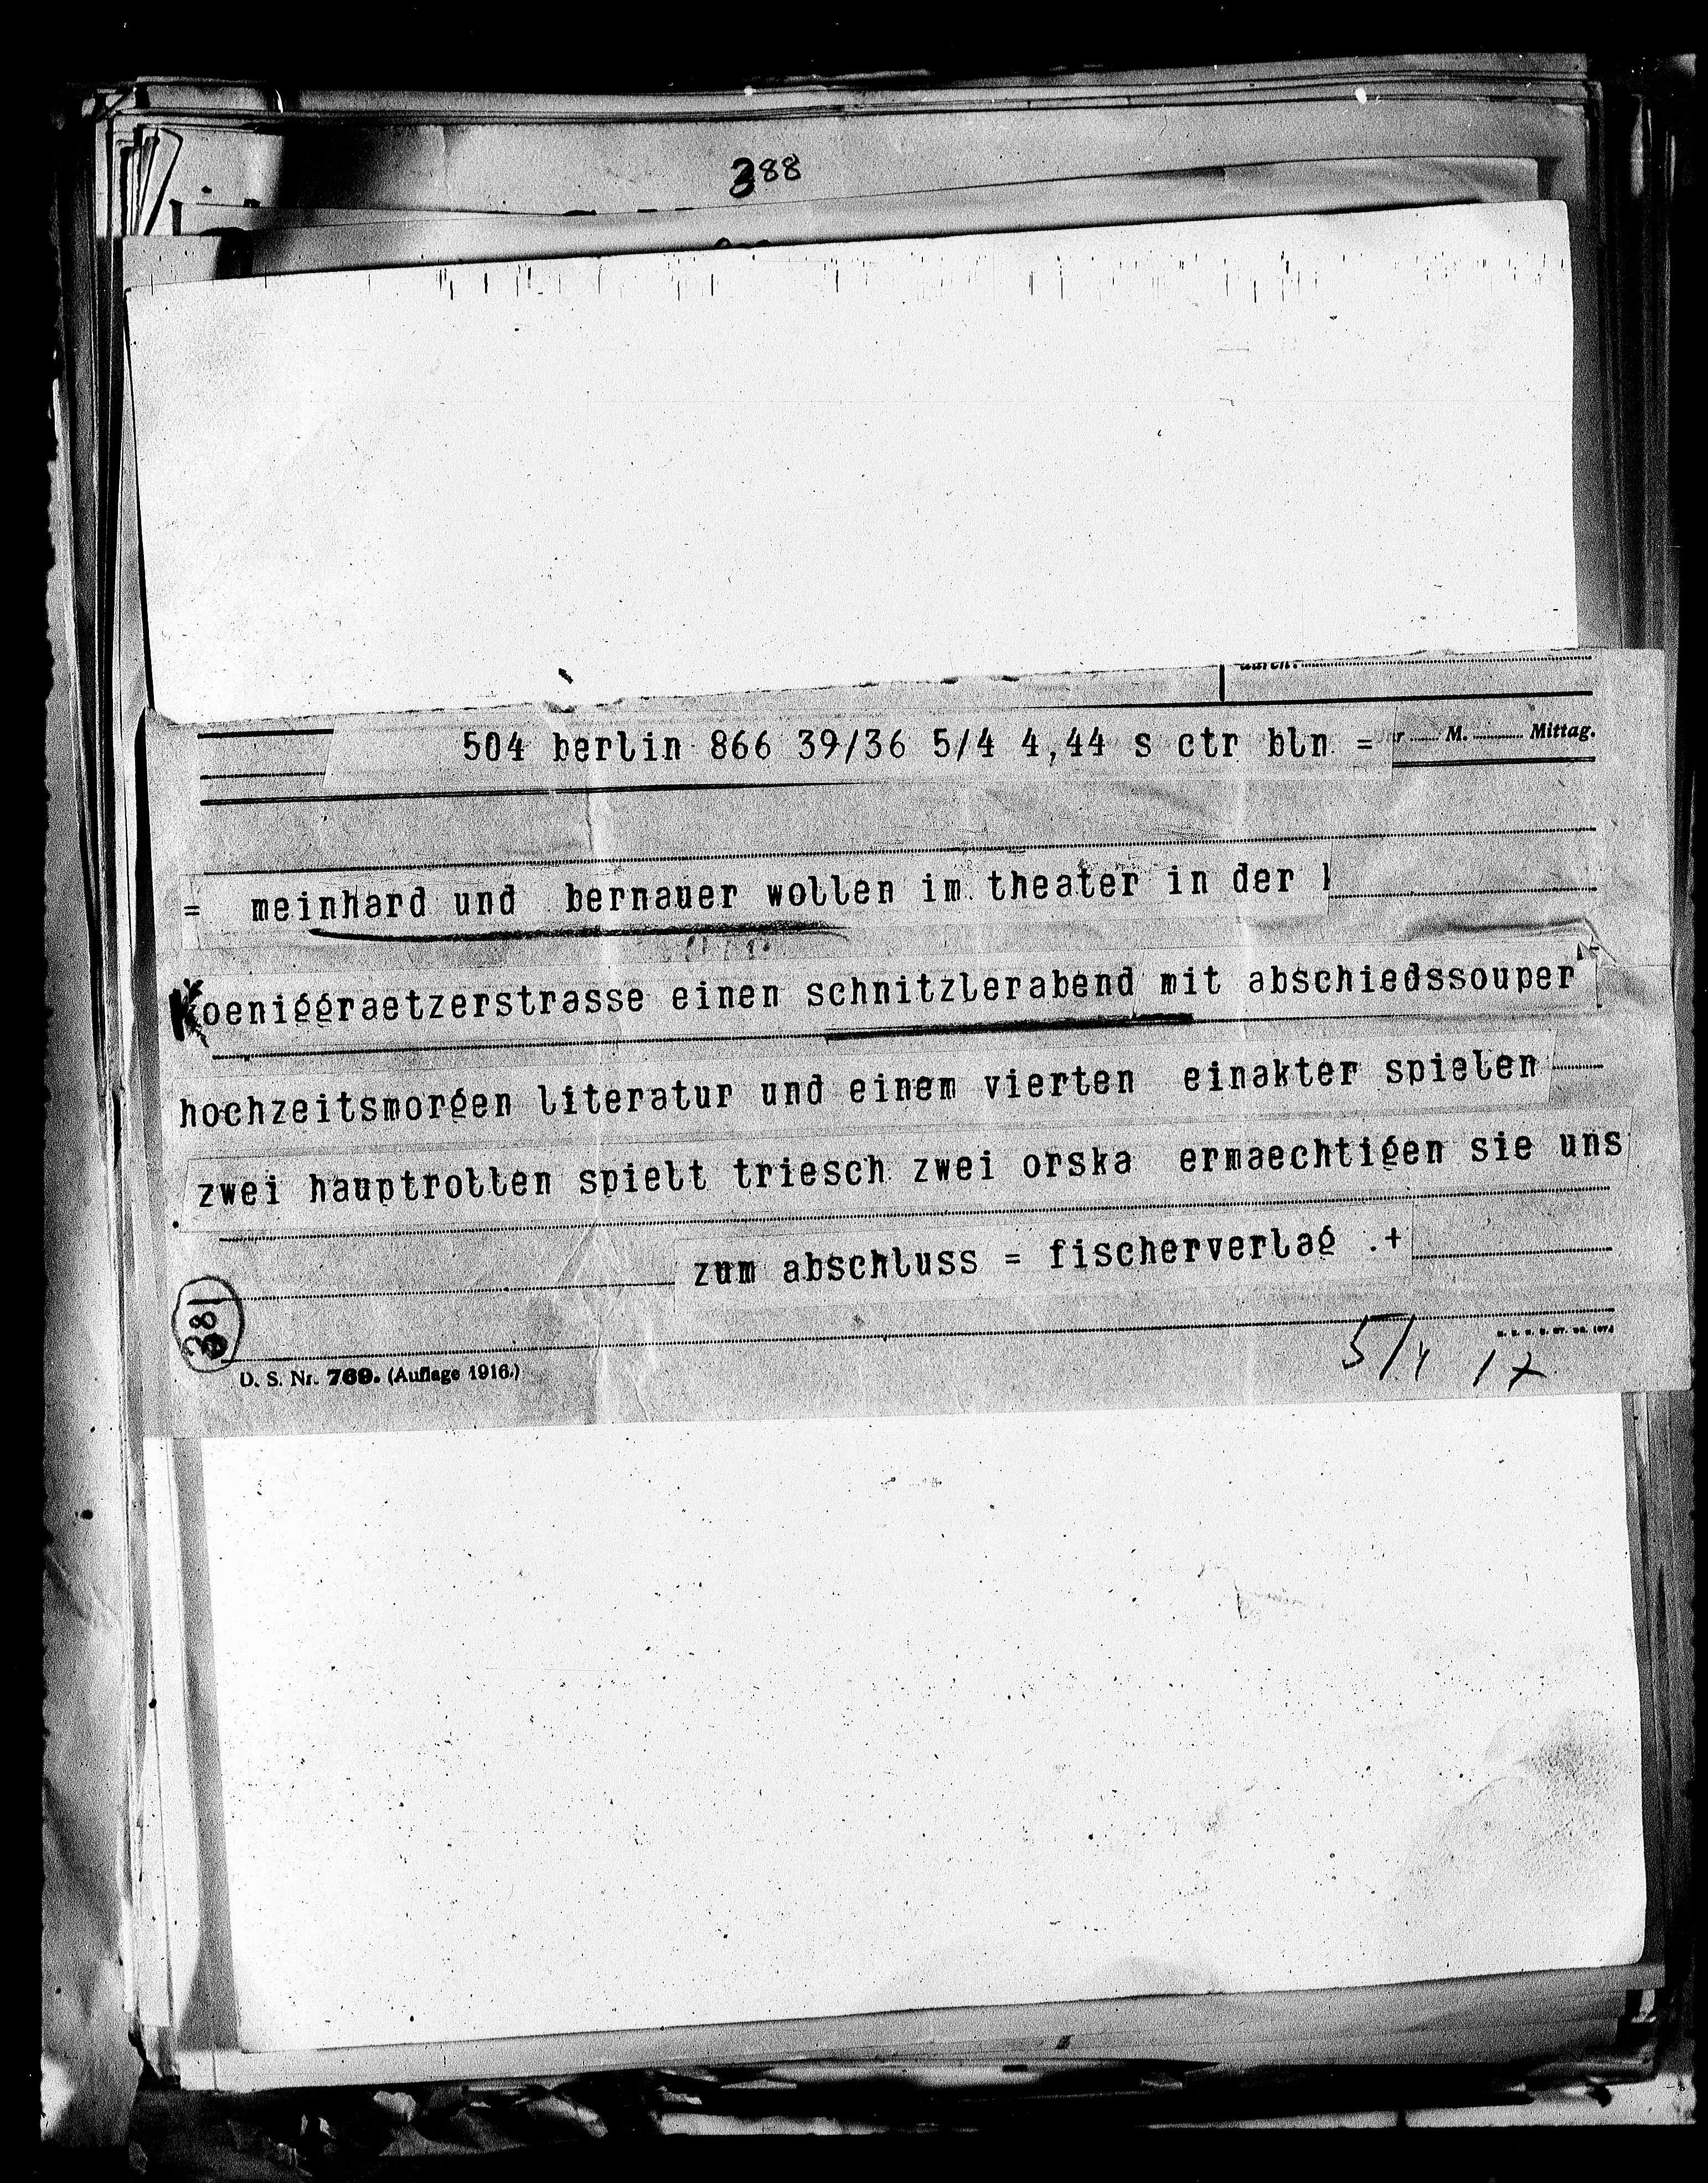 388
504 berlin 866 39/36 5/4 4,44 s ctr bln = M. Mittag.
= meinhard und bernauer wollen im theater in der
Koeniggraetzerstrasse einen schnitzlerabend mit abschiedssouper
hochzeitsmorgen literatur und einem vierten einakter spielen
zwei hauptrollen spielt triesch zwei orska ermaechtigen sie uns
zum abschluss = fischerverlag .+
381
D. S. Nr. 769. (Auflage 1916.)
5/4 17